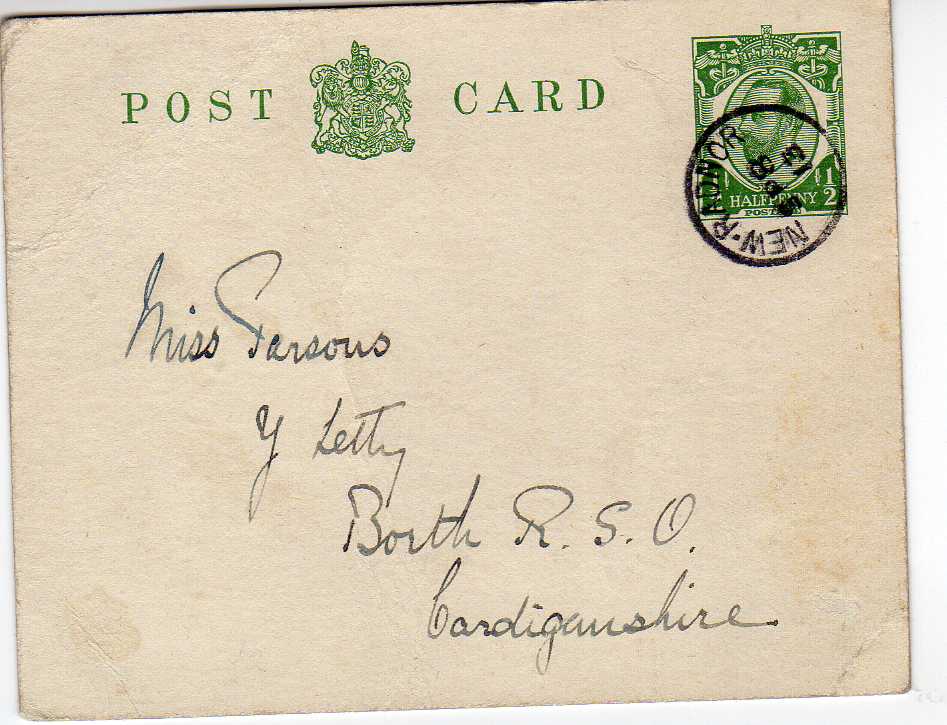 POST CARD
HALFPENNY
1/2
POSTAGE
NEW-RADNOR
Miss Parsons
Y Letty
Borth R.S.O.
Cardiganshire